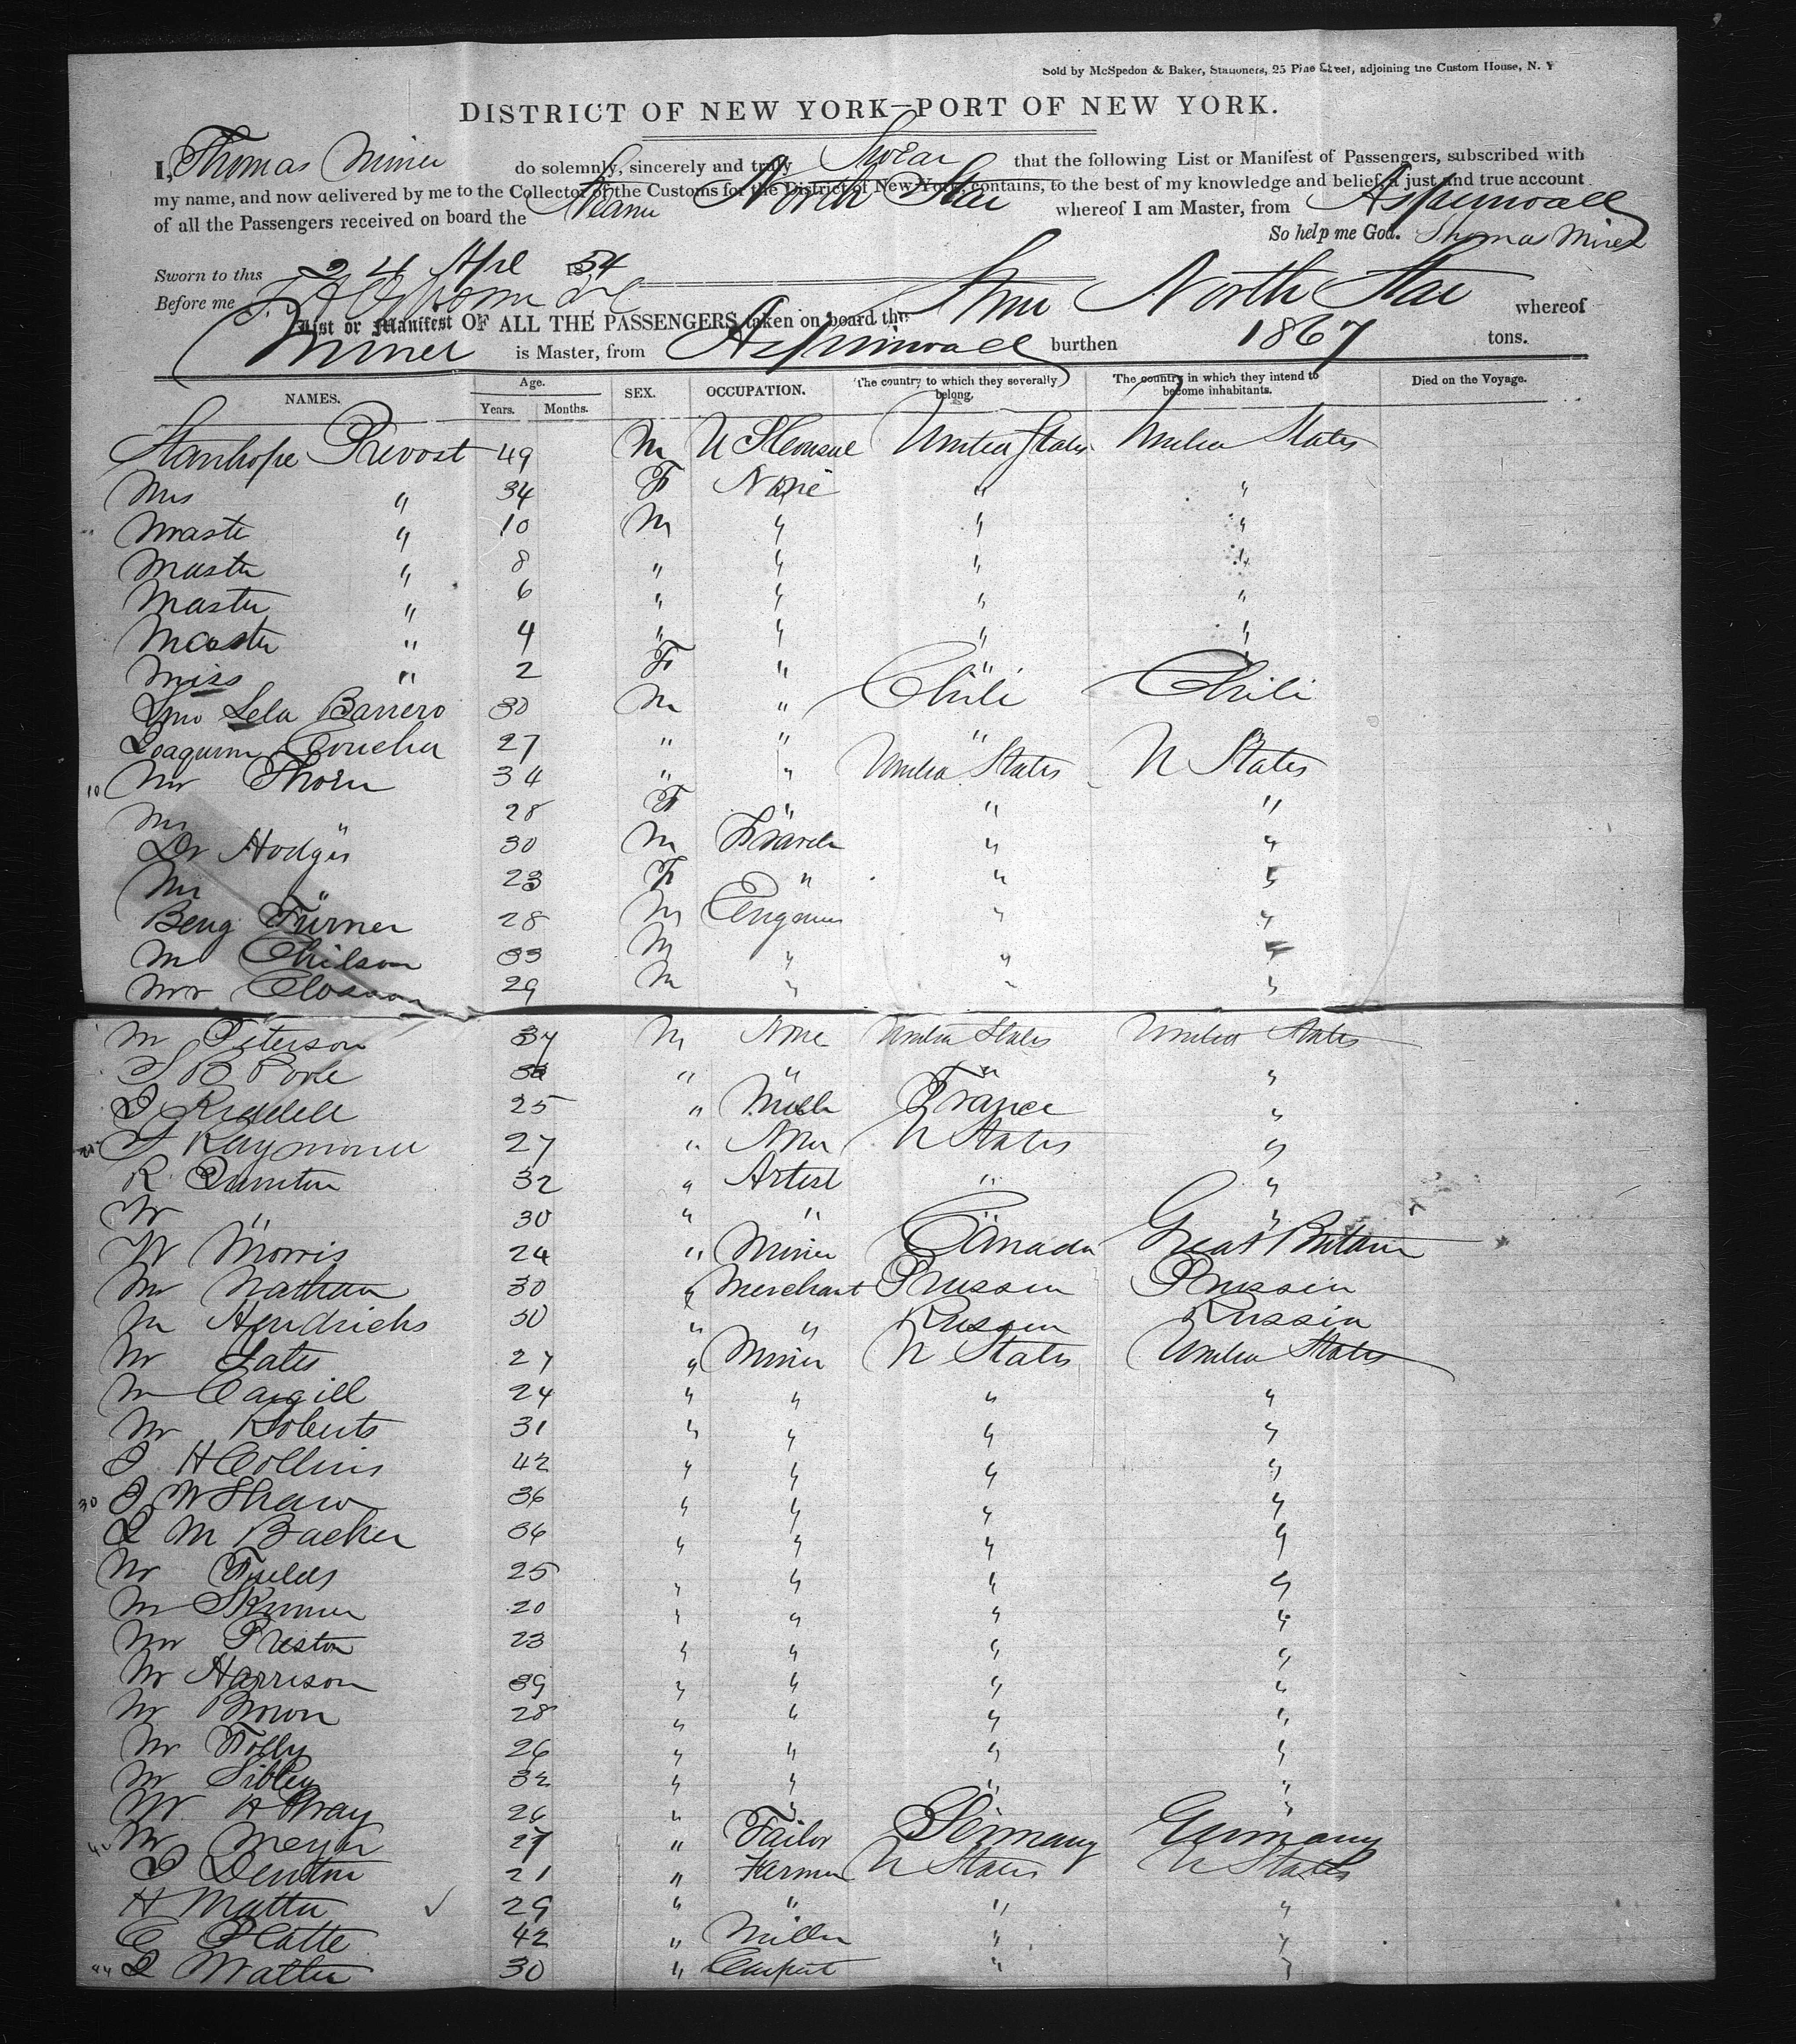 Sold by McSpedon & Baker, Stationers, 25 Pine Street, adjoining the Custom House, N. Y
DISTRICT OF NEW YORK—PORT OF NEW YORK.
I, Thomas Miner do solemnly, sincerely and truly Swear that the following List or Manifest of Passengers, subscribed with
my name, and now delivered by me to the Collector of the Customs for the District of New York, contains, to the best of my knowledge and belief, a just and true account
of all the Passengers received on board the North Star whereof I am Master, from Aspinwall
So help me God. Thomas Miner
Sworn to this 24 Apl 1854
Before me
List or Manifest OF ALL THE PASSENGERS taken on board the Stmr North Star whereof
Miner is Master, from Aspinwall burthen 1867 tons.
NAMES. Age. Years. Months. SEX. OCCUPATION. The country to which they severally belong. The country in which they intend to become inhabitants. Died on the Voyage.
Stanhope Prevost 49 M U S Consul United States United States
Mrs " 34 F None " "
Master " 10 M " " "
Master " 8 " " " "
Master " 6 " " " "
Master " 4 " " " "
Miss " 2 F " " "
Lela Barrero 30 M " Chili Chili
Joaquim 27 " " " "
10 Mr Thorn 34 " " United States U States
Mrs " 28 F " " "
Dr Hodges 30 M " "
Mrs " 23 F " " "
Benj Turner 28 M Engineer " "
Mr Chilson 33 M " " "
Mr Closson 29 M " " "
Mr Peterson 37 M None United States United States
S B Poole " " " "
J Riddell 25 " France "
20 Raymond 27 " None U States "
R 32 " Artist " "
W " 30 " " " "
W Morris 24 " Miner Canada Great Britain
Mr Nathan 30 " Merchant Prussia Prussia
Mr Hendricks 30 " " Russia Russia
Mr Yates 27 " Miner U States United States
Mr Cargill 24 " " " "
Mr Roberts 31 " " " "
J H Collins 42 " " " "
30 J W Shaw 36 " " " "
L M Backer 36 " " " "
Mr Fields 25 " " " "
Mr Skinner 20 " " " "
Mr Preston 23 " " " "
Mr Harrison 39 " " " "
Mr Brown 28 " " " "
Mr Folly 26 " " " "
Mr Sibley 32 " " " "
W H Bray 26 " " " "
40 Mr Meyer 27 " Tailor Germany Germany
J Denton 21 " Farmer U States U States
H Matter 29 " " " "
E Platte 42 " Miller " "
44 J Walter 30 " Carpent " "